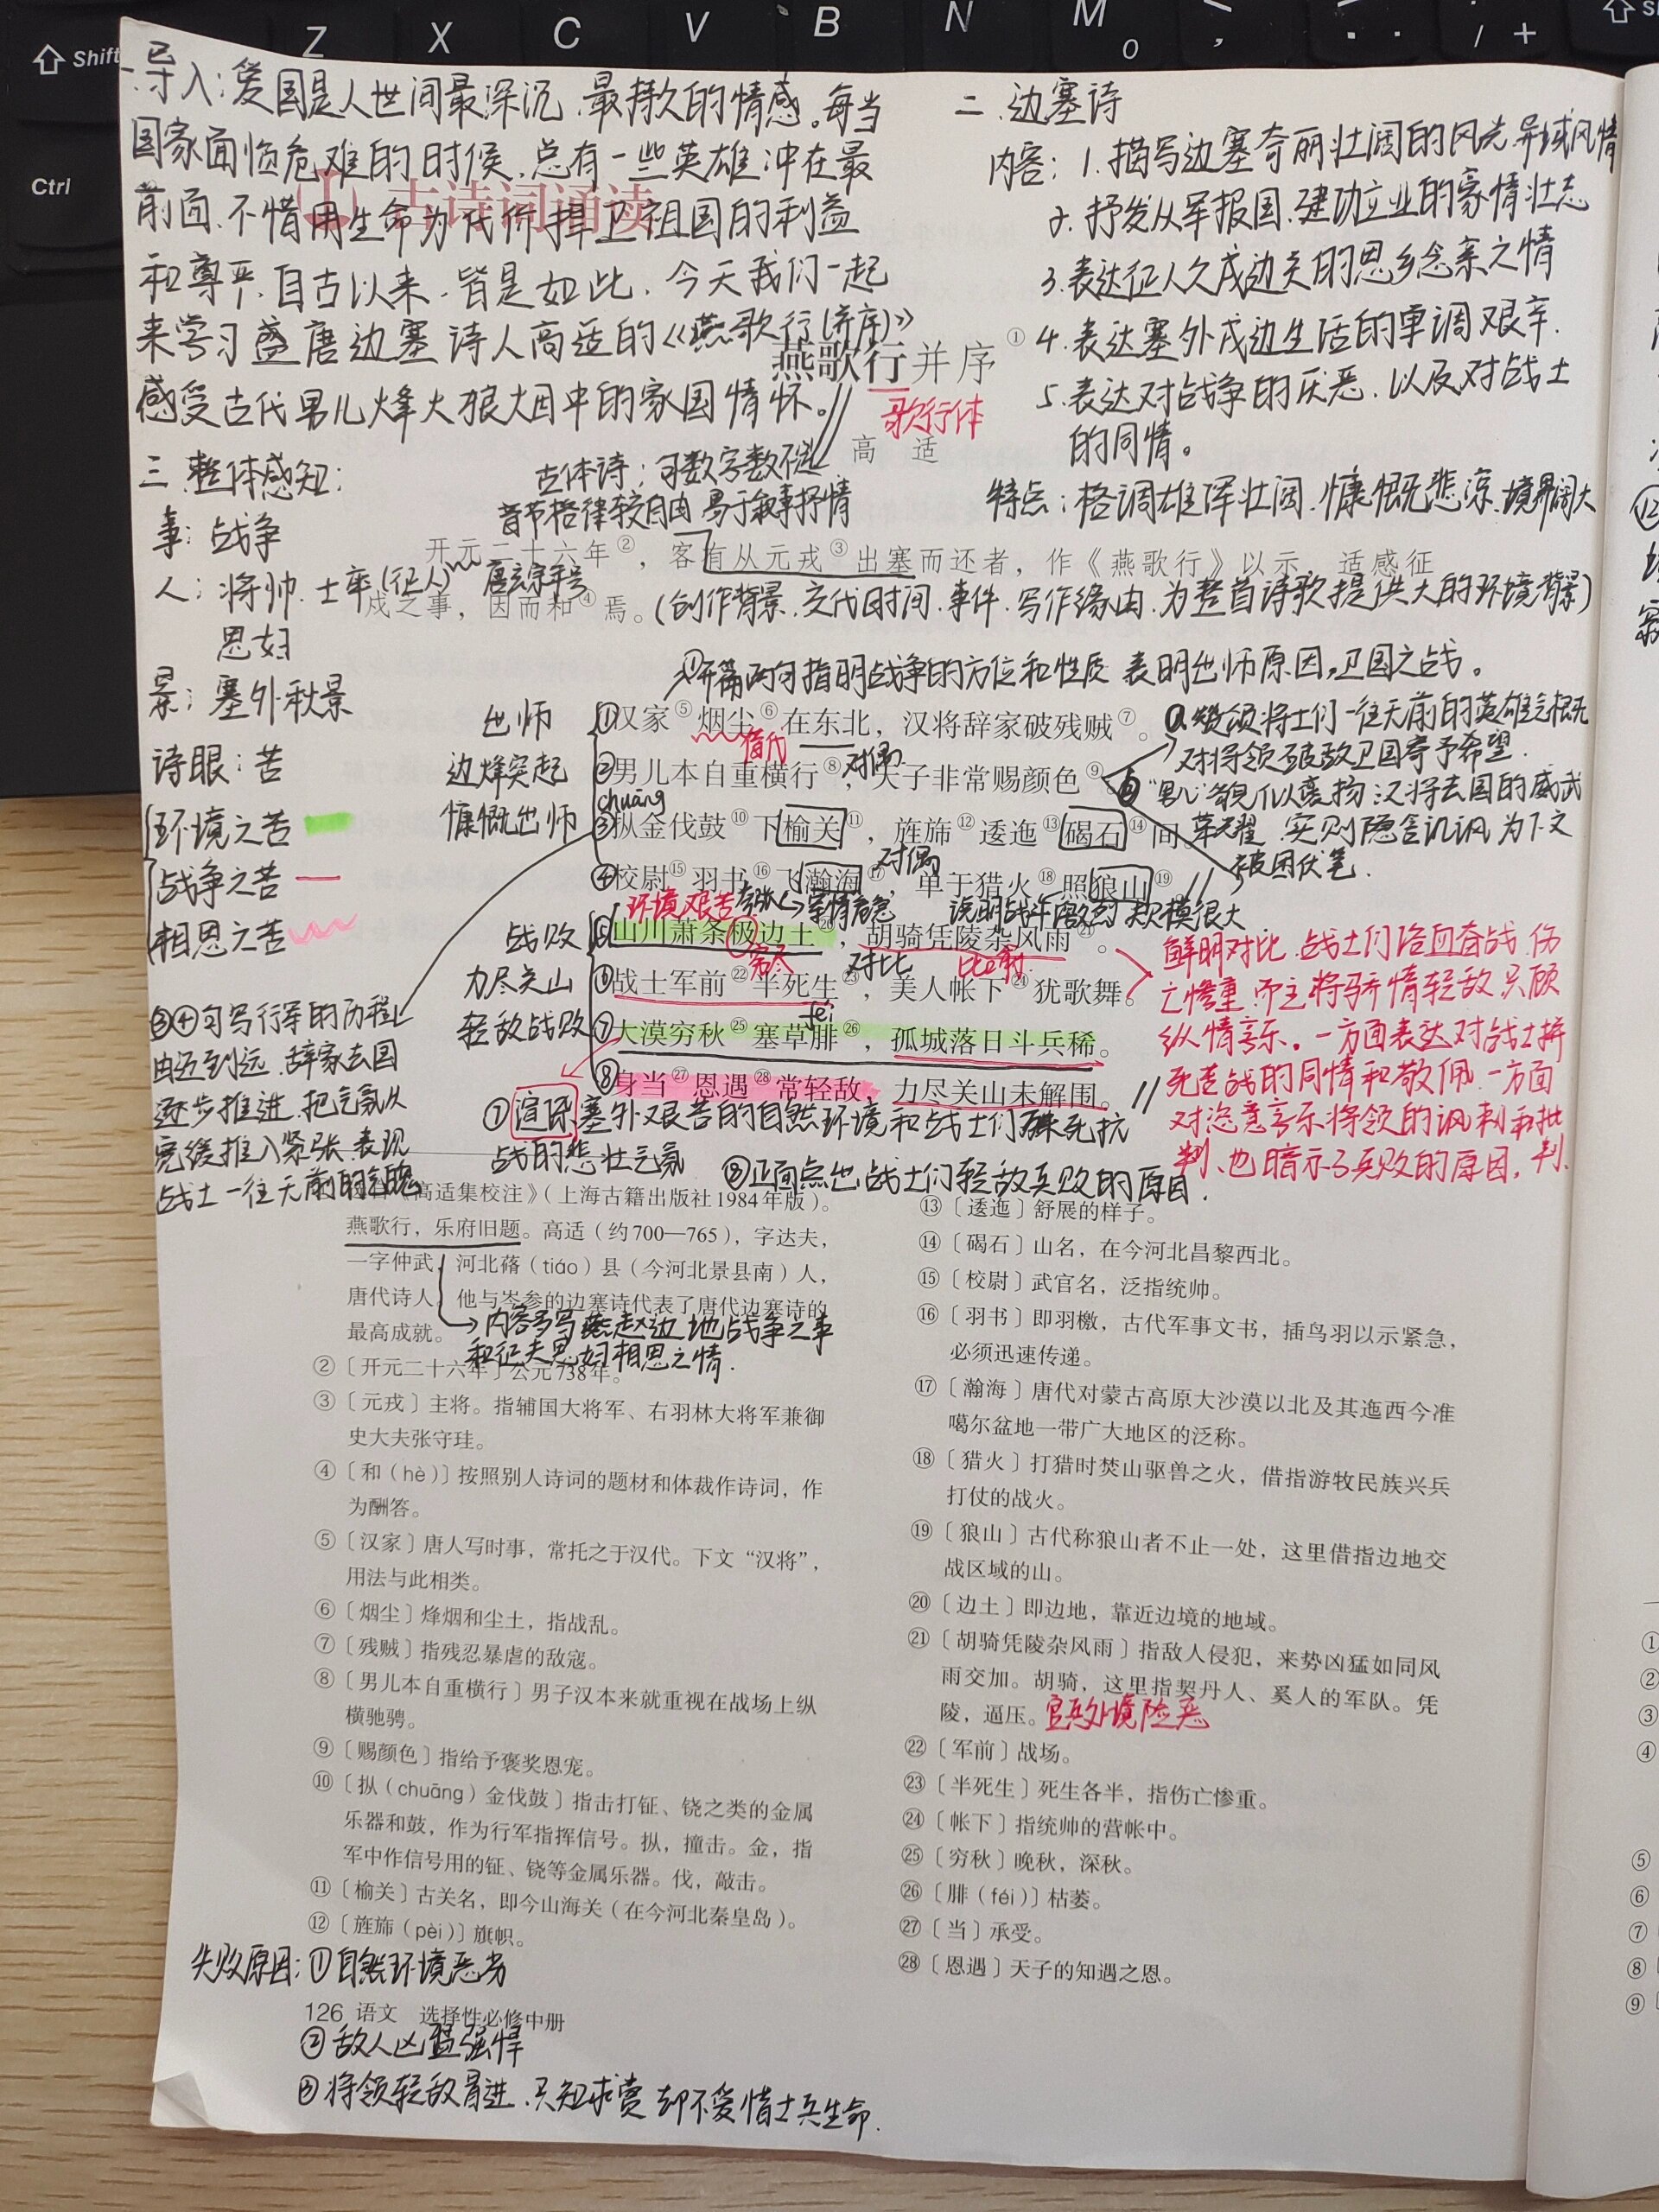 Shift
Z X C V B N M
Ctrl
一.导入:爱国是人世间最深沉、最持久的情感。每当
国家面临危难的时候,总有一些英雄冲在最
前面,不惜用生命为代价捍卫祖国的利益
和尊严,自古以来,皆是如此,今天我们一起
来学习盛唐边塞诗人高适的《燕歌行(并序)》
感受古代男儿烽火狼烟中的家国情怀。
古诗词诵读
二.边塞诗
内容:1.描写边塞奇丽壮阔的风光、异域风情
2.抒发从军报国、建功立业的豪情壮志
3.表达征人久戍边关的思乡念亲之情
4.表达塞外戍边生活的单调艰辛.
5.表达对战争的厌恶,以及对战士
的同情。
特点:格调雄浑壮阔,慷慨悲凉,境界阔大
燕歌行并序①
歌行体
高 适
古体诗:句数字数不限
音节格律较自由 易于叙事抒情
三.整体感知:
事:战争
人:将帅、士卒(征人)
思妇
景:塞外秋景
诗眼:苦
环境之苦
战争之苦
相思之苦
开元二十六年②,客有从元戎③出塞而还者,作《燕歌行》以示,适感征
唐玄宗年号
戍之事,因而和④焉。
(创作背景.交代时间.事件.写作缘由.为整首诗歌提供大的环境背景)
①开篇两句指明战争的方位和性质 表明出师原因,卫国之战。
出师
边烽突起
慷慨出师
①汉家⑤烟尘⑥在东北,汉将辞家破残贼⑦。
借代
②男儿本自重横行⑧,天子非常赐颜色⑨。
对偶
chuāng
③摐金伐鼓⑩下榆关⑪,旌旆⑫逶迤⑬碣石⑭间。
④校尉⑮羽书⑯飞瀚海⑰,单于猎火⑱照狼山⑲。
对偶
a.赞颂将士们一往无前的英雄气概
对将领破敌卫国寄予希望.
b“男儿”貌似褒扬汉将去国的威武
荣耀 实则隐含讥讽为下文
被困伏笔.
环境艰苦
军情危急
说明战斗激烈 规模很大
战败
力尽关山
轻敌战败
⑤山川萧条极边土⑳,胡骑凭陵杂风雨㉑。
穷尽
对比
比喻
⑥战士军前㉒半死生㉓,美人帐下㉔犹歌舞。
féi
⑦大漠穷秋㉕塞草腓㉖,孤城落日斗兵稀。
⑧身当㉗恩遇㉘常轻敌,力尽关山未解围。
鲜明对比.战士们浴血奋战 伤
亡惨重,而主将骄惰轻敌只顾
纵情享乐。一方面表达对战士拼
死苦战的同情和敬佩,一方面
对恣意享乐将领的讽刺和批
判、也暗示了兵败的原因,
③④句写行军的历程
由近到远.辞家去国
逐步推进.把气氛从
宽缓推入紧张.表现
战士一往无前的气魄
⑦渲染塞外艰苦的自然环境和战士们殊死抗
战的悲壮气氛
⑧正面点出战士们轻敌兵败的原因.
高适集校注》(上海古籍出版社1984年版)。
燕歌行,乐府旧题。高适(约700—765),字达夫,
一字仲武,河北蓨(tiáo)县(今河北景县南)人,
唐代诗人。他与岑参的边塞诗代表了唐代边塞诗的
最高成就。
内容多写燕赵边地战争之事
和征夫思妇相思之情.
②〔开元二十六年〕公元738年。
③〔元戎〕主将。指辅国大将军、右羽林大将军兼御
史大夫张守珪。
④〔和(hè)〕按照别人诗词的题材和体裁作诗词,作
为酬答。
⑤〔汉家〕唐人写时事,常托之于汉代。下文“汉将”,
用法与此相类。
⑥〔烟尘〕烽烟和尘土,指战乱。
⑦〔残贼〕指残忍暴虐的敌寇。
⑧〔男儿本自重横行〕男子汉本来就重视在战场上纵
横驰骋。
⑨〔赐颜色〕指给予褒奖恩宠。
⑩〔摐(chuāng)金伐鼓〕指击打钲、铙之类的金属
乐器和鼓,作为行军指挥信号。摐,撞击。金,指
军中作信号用的钲、铙等金属乐器。伐,敲击。
⑪〔榆关〕古关名,即今山海关(在今河北秦皇岛)。
⑫〔旌旆(pèi)〕旗帜。
⑬〔逶迤〕舒展的样子。
⑭〔碣石〕山名,在今河北昌黎西北。
⑮〔校尉〕武官名,泛指统帅。
⑯〔羽书〕即羽檄,古代军事文书,插鸟羽以示紧急,
必须迅速传递。
⑰〔瀚海〕唐代对蒙古高原大沙漠以北及其迤西今准
噶尔盆地一带广大地区的泛称。
⑱〔猎火〕打猎时焚山驱兽之火,借指游牧民族兴兵
打仗的战火。
⑲〔狼山〕古代称狼山者不止一处,这里借指边地交
战区域的山。
⑳〔边土〕即边地,靠近边境的地域。
㉑〔胡骑凭陵杂风雨〕指敌人侵犯,来势凶猛如同风
雨交加。胡骑,这里指契丹人、奚人的军队。凭
陵,逼压。
官兵处境险恶
㉒〔军前〕战场。
㉓〔半死生〕死生各半,指伤亡惨重。
㉔〔帐下〕指统帅的营帐中。
㉕〔穷秋〕晚秋,深秋。
㉖〔腓(féi)〕枯萎。
㉗〔当〕承受。
㉘〔恩遇〕天子的知遇之恩。
失败原因:①自然环境恶劣
126 语文 选择性必修中册
②敌人凶猛强悍
③将领轻敌冒进.只知求赏 却不爱惜士兵生命.